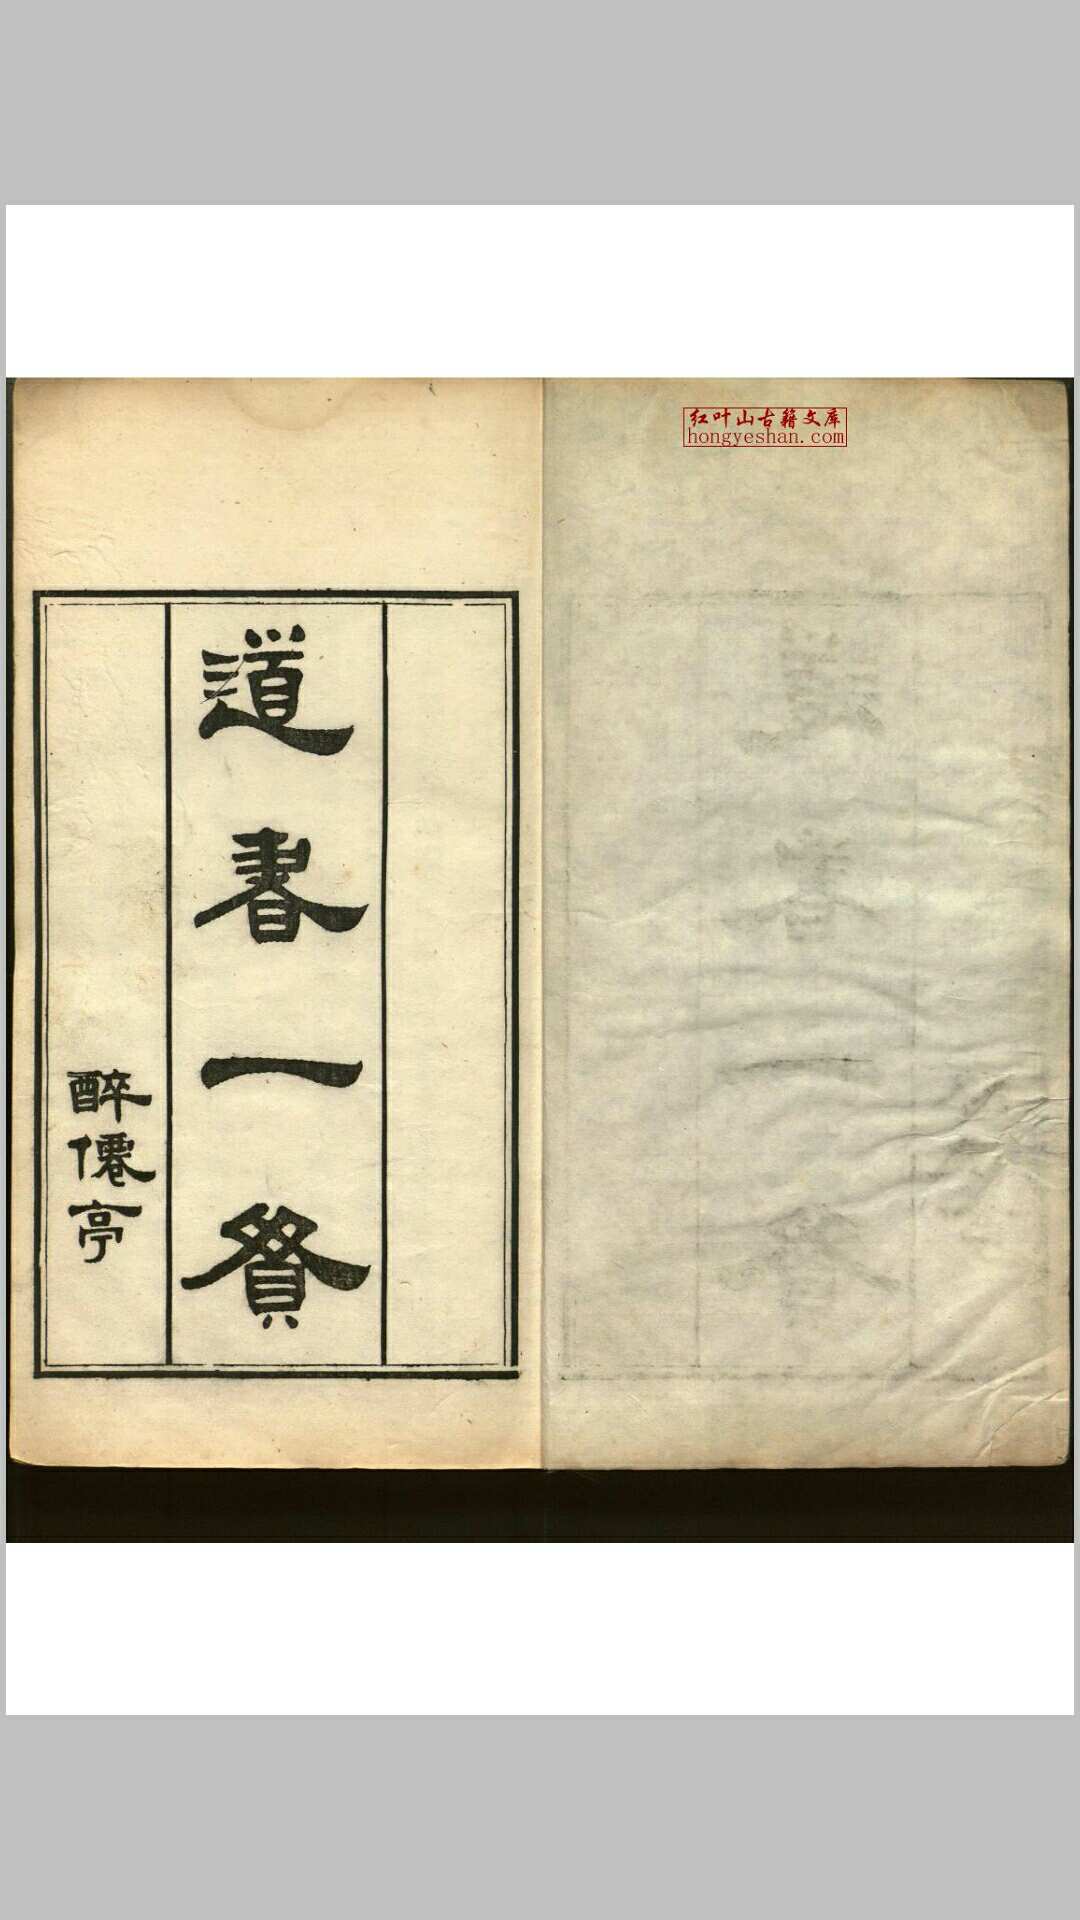 红叶山古籍文库
hongyeshan.com
道書一貫
醉僊亭